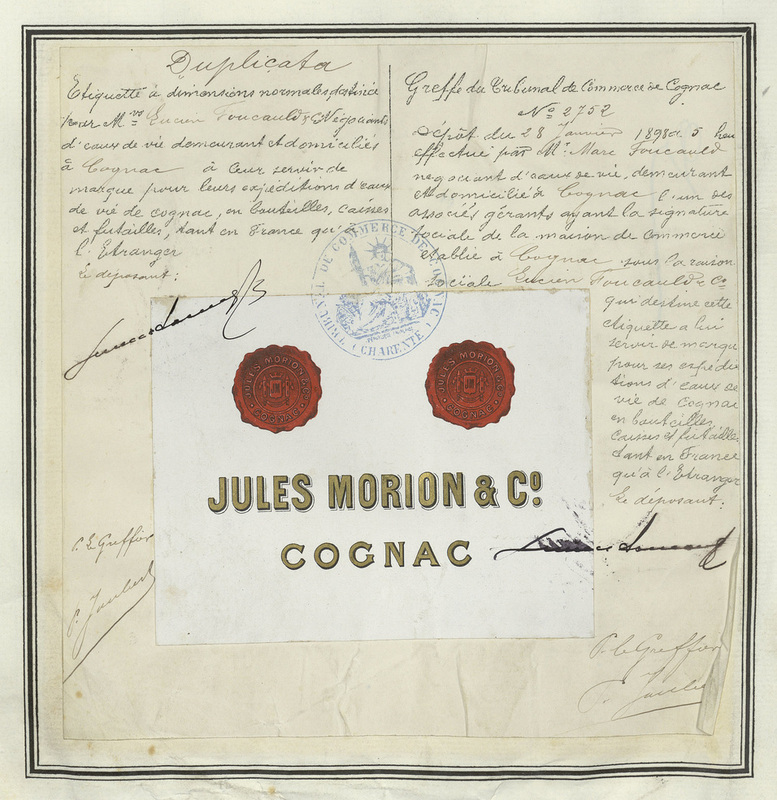 Duplicata
Etiquette à dimensions normales, destinée
pour M.rs Lucien Foucauld & C.º Négociants
d'eaux de vie demeurant et domiciliés
à Cognac à leur servir de
marque pour leurs expéditions d'eaux
de vie de cognac, en bouteilles, caisses
et futailles, tant en France qu'à
l'Etranger
Le déposant:
Greffe du Tribunal de Commerce de Cognac
Nº 2752
Dépôt du 28 Janvier 1898 à 5 heu
effectué par M.r Marc Foucauld
négociant d'eaux de vie, demeurant
et domicilié à Cognac l'un des
associés gérants ayant la signature
sociale de la maison de commerce
établie à Cognac sous la raison
sociale Lucien Foucauld & Cº
qui destine cette
étiquette à lui
servir de marque
pour ses expédi
tions d'eaux de
vie de cognac
en bouteilles,
caisses et futailles
tant en France
qu'à l'Etranger
Le déposant:
TRIBUNAL DE COMMERCE DE COGNAC
(CHARENTE)
JULES MORION & Cº
COGNAC
JULES MORION & Cº
COGNAC
JULES MORION & Cº
COGNAC
P. le Greffier
P. Joubert
P. le Greffier
P. Joubert